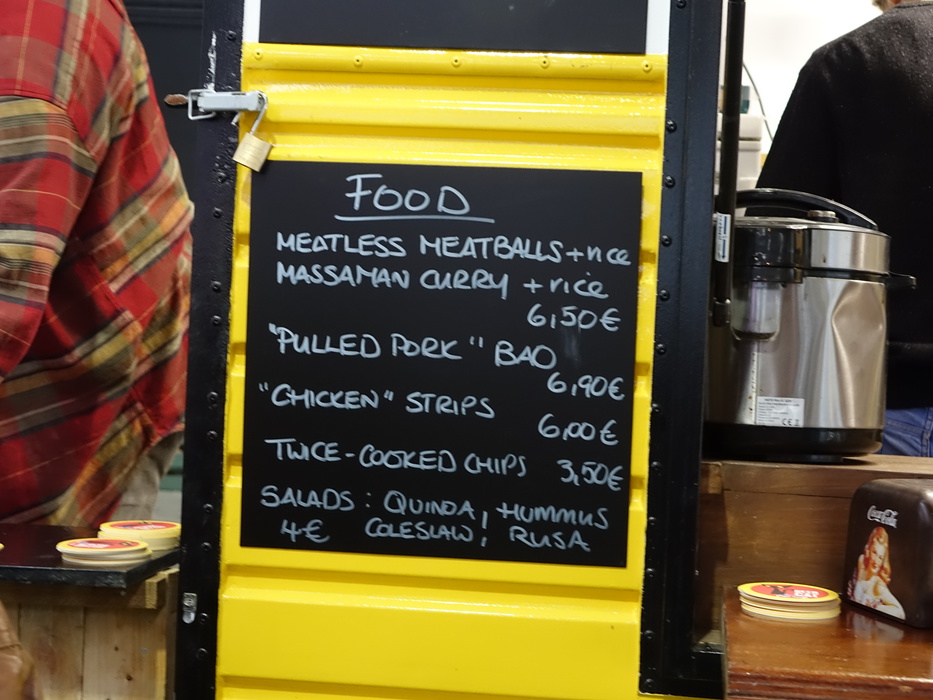 FOOD
MEATLESS MEATBALLS + rice
MASSAMAN CURRY + rice
6,50€
"PULLED PORK" BAO
6,90€
"CHICKEN" STRIPS
6,00€
TWICE-COOKED CHIPS 3,50€
SALADS: QUINOA, HUMMUS
4€ COLESLAW, RUSA
Coca-Cola